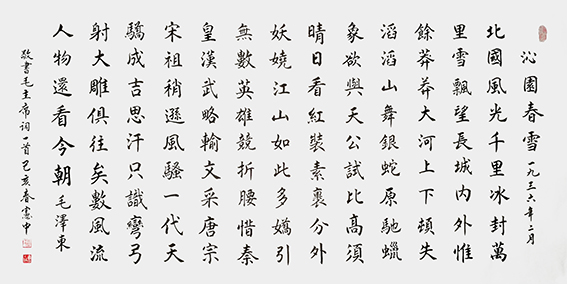 沁園春雪 一九三六年二月
北國風光千里冰封萬
里雪飄望長城內外惟
餘莽莽大河上下頓失
滔滔山舞銀蛇原馳蠟
象欲與天公試比高須
晴日看紅裝素裹分外
妖嬈江山如此多嬌引
無數英雄競折腰惜秦
皇漢武略輸文采唐宗
宋祖稍遜風騷一代天
驕成吉思汗只識彎弓
射大雕俱往矣數風流
人物還看今朝 毛澤東
敬書毛主席詞一首己亥春憲中